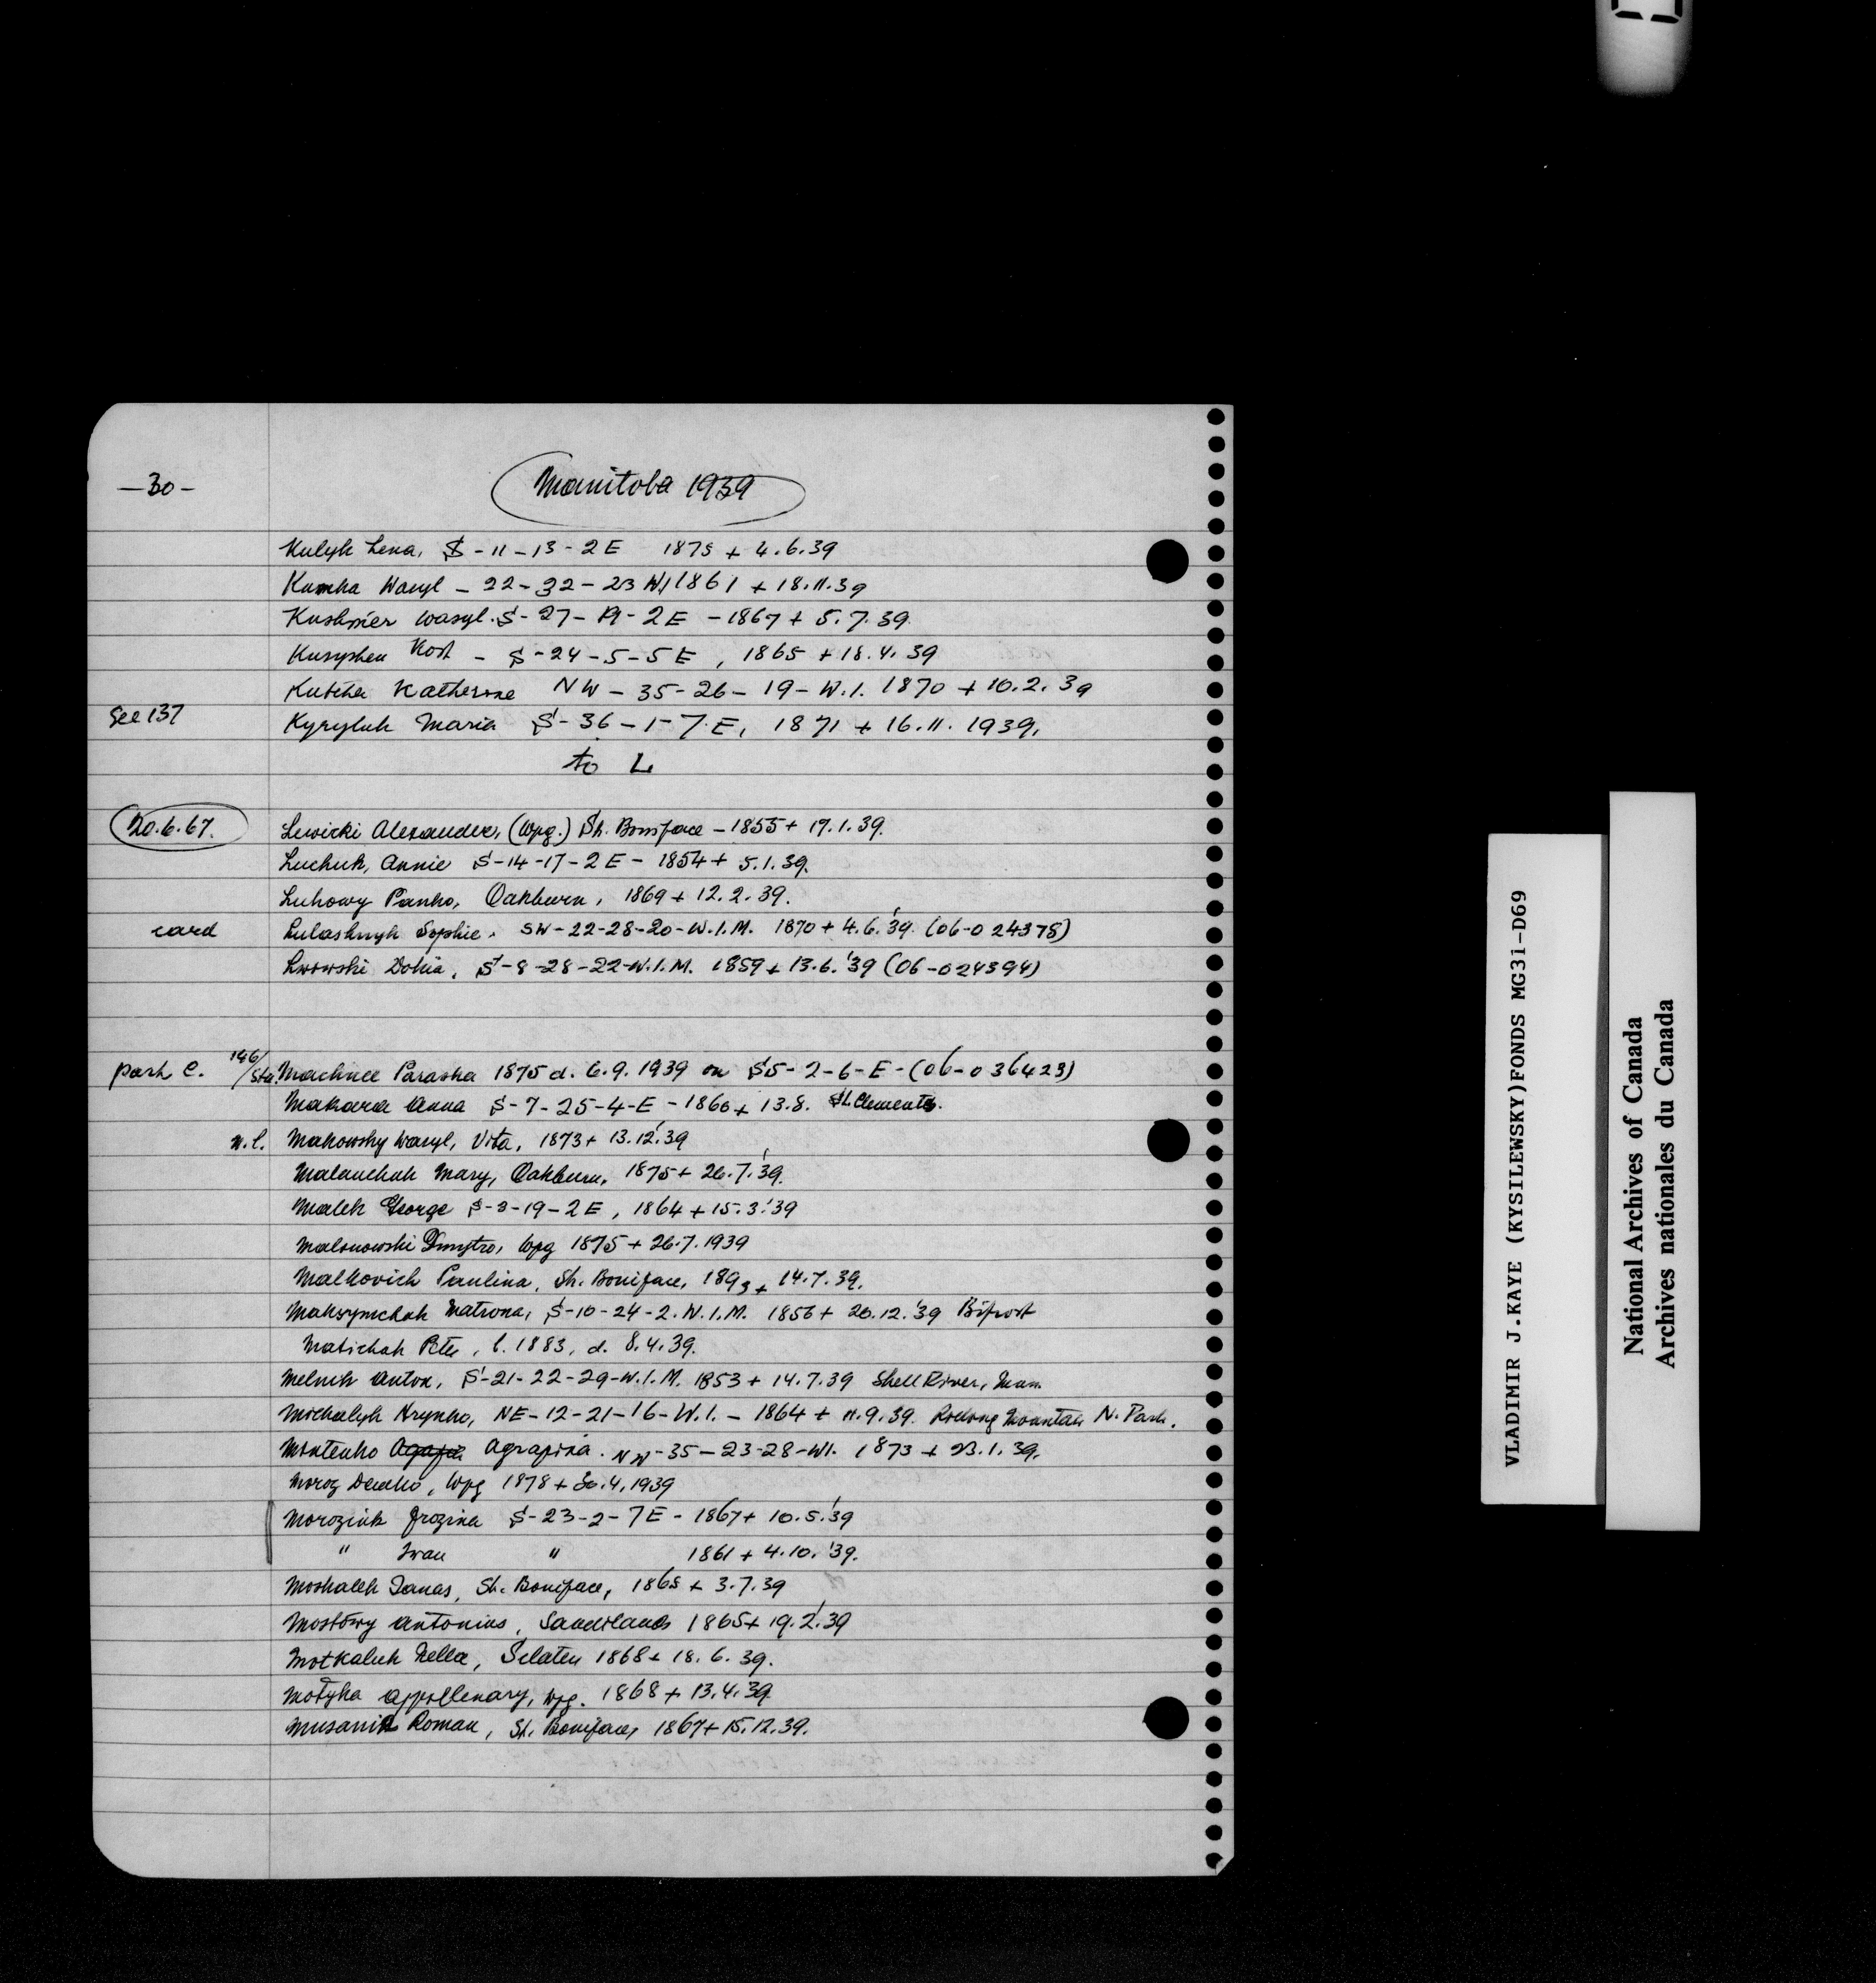 —30—
Manitoba 1939
Kulyk Lena, S-11-13-2E 1875 + 4.6.39
Kumka Wasyl - 22-32-23 W1 1861 + 18.11.39
Kushnier Wasyl. S-27-19-2E - 1867 + 5.7.39.
Kusyshen Kost - S-24-5-5E, 1865 + 18.4.39
Kutcha Katherine NW-35-26-19-W.1. 1870 + 10.2.39
See 137 Kyryluk Maria S-36-1-7.E, 1871 + 16.11.1939.
to L
20.6.67. Lewicki Alexander, (Wpg.) St. Boniface - 1855 + 17.1.39.
Luchuk, Annie S-14-17-2E - 1854 + 5.1.39.
Luhowy Panko, Oakburn, 1869 + 12.2.39.
card Lulashnyk Sophie. SW-22-28-20-W.1.M. 1870 + 4.6.'39. (06-024378)
Lwowski Dokia, S-8-28-22-W.1.M. 1859 + 13.6.'39 (06-024394)
park C. 146/ Sta. Machnee Paraska 1875 d. 6.9.1939 on S5-2-6-E-(06-036423)
Makara Anna S-7-25-4-E - 1866 + 13.8. St. Clements.
N.l. Makowsky Wasyl, Vita, 1873 + 13.12.'39
Malanchuk Mary, Oakburn, 1875 + 26.7.'39.
Malek George S-3-19-2E, 1864 + 15.3.'39
Malonowski Dmytro, Wpg 1875 + 26.7.1939
Malkovich Paulina, St. Boniface, 1893 + 14.7.39.
Maksymchuk Matrona, S-10-24-2.W.1.M. 1856 + 20.12.'39 Bifrost
Matichak Peter, b. 1883, d. 8.4.39.
Melnik Anton, S-21-22-29-W.1.M. 1853 + 14.7.39 Shell River, Man.
Michalyk Hrynko, NE-12-21-16-W.1. - 1864 + 11.9.39. Riding Mountain N. Park.
Mintenko Agafia Agrapina. NW-35-23-28-W1. 1873 + 23.1.39.
Moroz Danko, Wpg 1878 + 30.4.1939
Moroziuk Frozina S-23-2-7E - 1867 + 10.5.'39
" Iwan " 1861 + 4.10.'39.
Moskalek Panas, St. Boniface, 1865 + 3.7.39
Mostowy Antonius, Sandilands 1865 + 19.2.'39
Motkaluk Nella, Selater 1868 + 18.6.39.
Motyka Appollenary, Wpg. 1868 + 13.4.39
Musanik Roman, St. Boniface, 1867 + 15.12.39.
VLADIMIR J.KAYE (KYSILEWSKY)FONDS MG31-D69
National Archives of Canada
Archives nationales du Canada